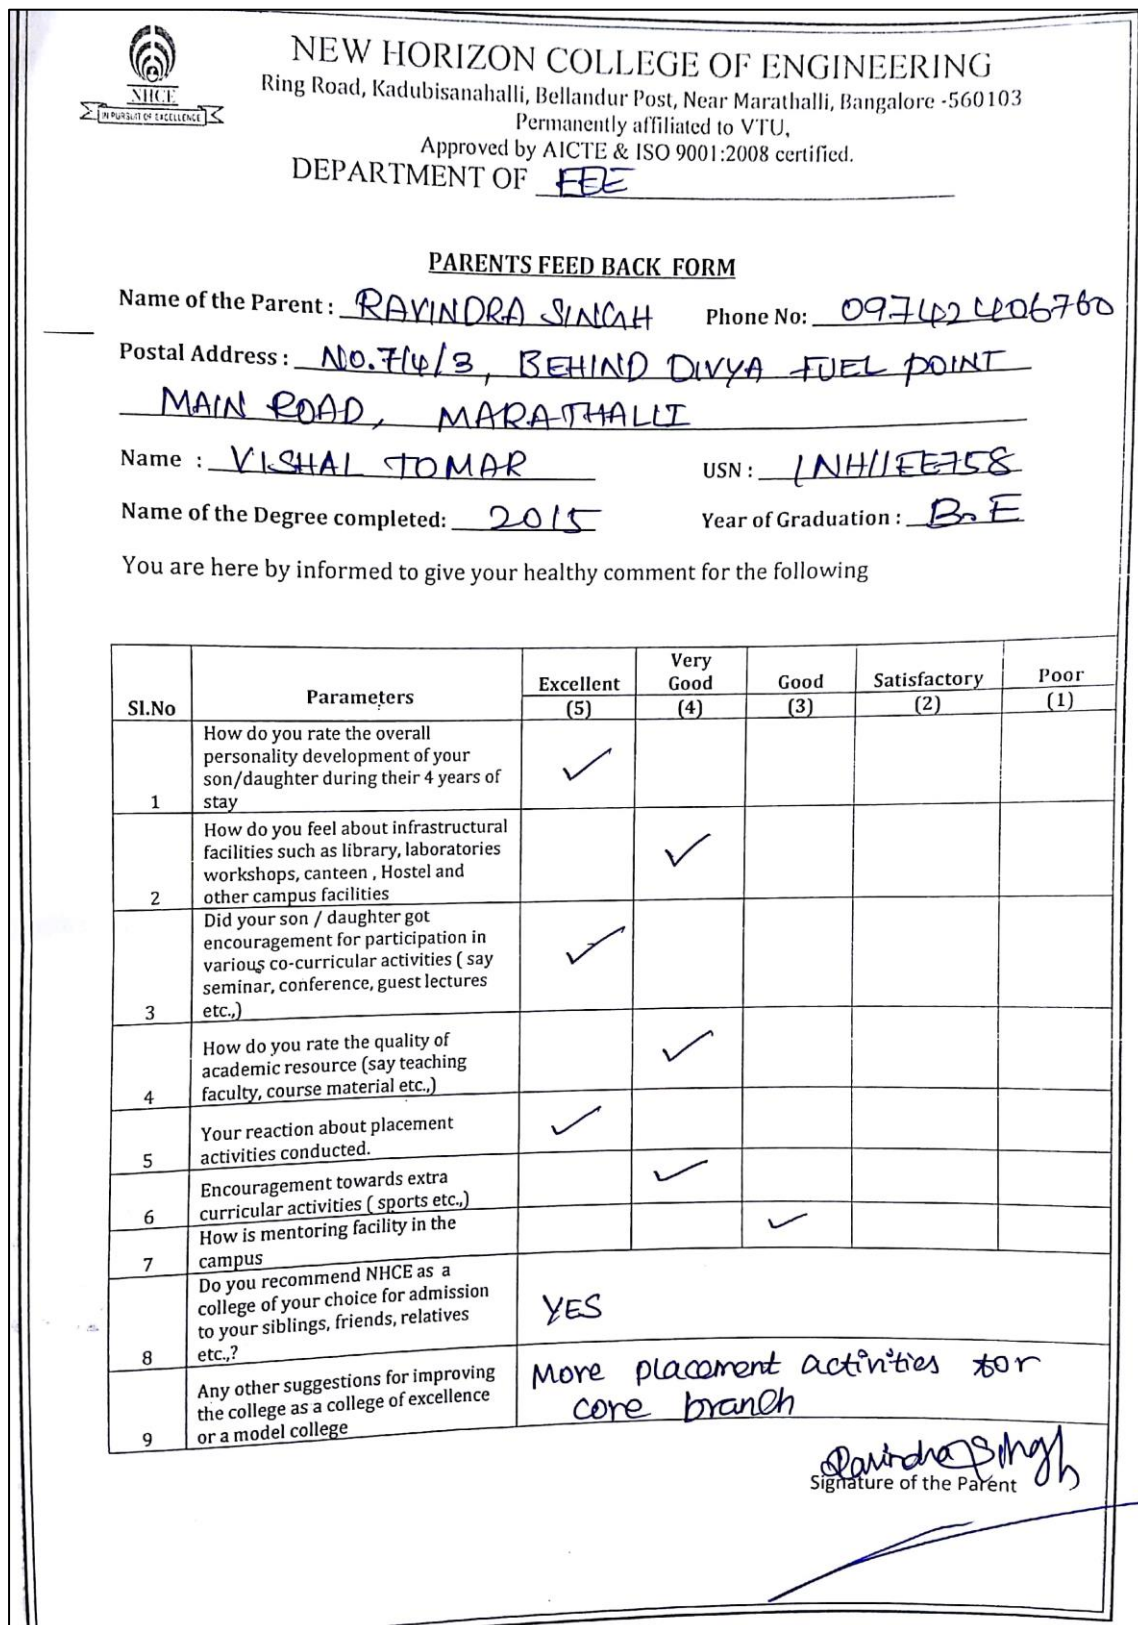 NHCE
IN PURSUIT OF EXCELLENCE
NEW HORIZON COLLEGE OF ENGINEERING
Ring Road, Kadubisanahalli, Bellandur Post, Near Marathalli, Bangalore -560103
Permanently affiliated to VTU,
Approved by AICTE & ISO 9001:2008 certified.
DEPARTMENT OF EEE
PARENTS FEED BACK FORM
Name of the Parent : RAVINDRA SINGH Phone No: 09742406760
Postal Address : NO.7/4/3, BEHIND DIVYA FUEL POINT
MAIN ROAD, MARATHALLI
Name : VISHAL TOMAR USN : 1NH11EE758
Name of the Degree completed: 2015 Year of Graduation : B.E
You are here by informed to give your healthy comment for the following
Sl.No Parameters Excellent (5) Very Good (4) Good (3) Satisfactory (2) Poor (1)
How do you rate the overall
personality development of your
son/daughter during their 4 years of
1 stay ✓
How do you feel about infrastructural
facilities such as library, laboratories
workshops, canteen , Hostel and
2 other campus facilities ✓
Did your son / daughter got
encouragement for participation in
various co-curricular activities ( say
seminar, conference, guest lectures
3 etc.,) ✓
How do you rate the quality of
academic resource (say teaching
4 faculty, course material etc.,) ✓
Your reaction about placement
5 activities conducted. ✓
Encouragement towards extra
6 curricular activities ( sports etc.,) ✓
How is mentoring facility in the
7 campus ✓
Do you recommend NHCE as a
college of your choice for admission
to your siblings, friends, relatives
8 etc.,? YES
Any other suggestions for improving
the college as a college of excellence
9 or a model college
More placement activities for
core branch
Ravindra Singh
Signature of the Parent